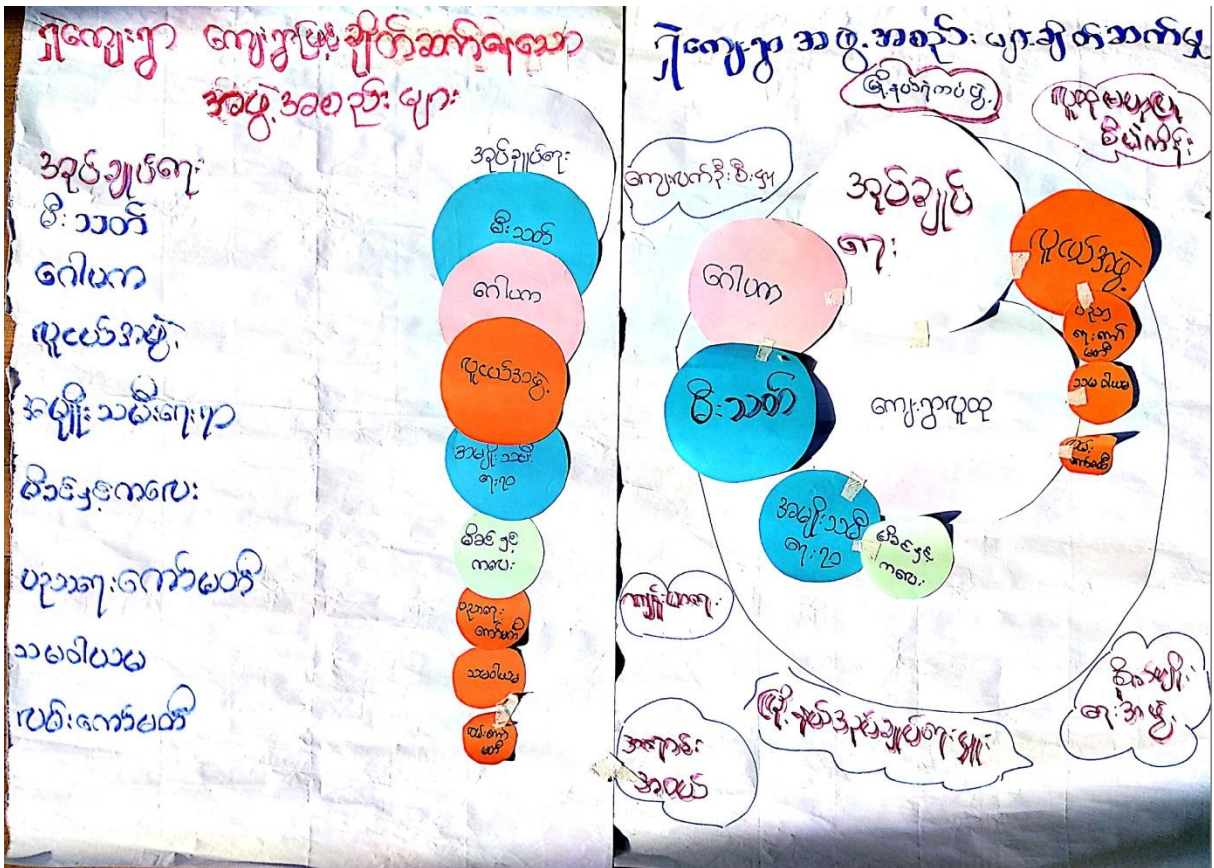 ရှဲကျေးရွာ ကျေးရွာဖြင့်ချိတ်ဆက်နေသော
အဖွဲ့အစည်းများ
အုပ်ချုပ်ရေး
မီးသတ်
ဂေါပက
လူငယ်အဖွဲ့
အမျိုးသမီးရေးရာ
မိခင်နှင့်ကလေး
ပညာရေးကော်မတီ
သမဝါယမ
လမ်းကော်မတီ
အုပ်ချုပ်ရေး
မီးသတ်
ဂေါပက
လူငယ်အဖွဲ့
အမျိုးသမီး
ရေးရာ
မိခင်နှင့်
ကလေး
ပညာရေး
ကော်မတီ
သမဝါယမ
လမ်းကော်
မတီ
ရှဲကျေးရွာ အဖွဲ့အစည်းများချိတ်ဆက်မှု
မြို့နယ်ရဲတပ်ဖွဲ့
လူထုဗဟိုပြု
စီမံကိန်း
ကျေးလက်ဦးစီးဌာန
အုပ်ချုပ်
ရေး
လူငယ်အဖွဲ့
ဂေါပက
ပညာ
ရေးကော်
မတီ
မီးသတ်
ကျေးရွာလူထု
သမဝါယမ
လမ်း
ကော်မတီ
အမျိုးသမီး
ရေးရာ
မိခင်နှင့်
ကလေး
ကျန်းမာရေး
မြို့နယ်အုပ်ချုပ်ရေးမှူး
ရေးအဖွဲ့
အရောင်း
အဝယ်